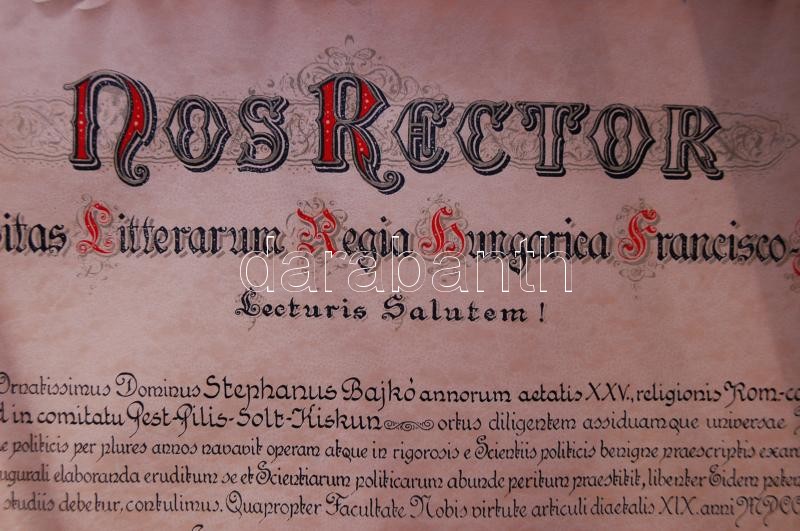 Nos Rector
sitas Litterarum Regia Hungarica Francisco-
darabanth
Lecturis Salutem!
Ornatissimus Dominus Stephanus Bajkó annorum aetatis XXV., religionis Rom-ca
in comitatu Pest-Pilis-Solt-Kiskun ortus diligentem assiduamque universae
politicis per plures annos navavit operam atque in rigorosis e Scientiis politicis benigne praescriptis exam
ugurali elaboranda eruditum se et Scientiarum politicarum abunde peritum praestitit, libenter Eidem peten
studiis debetur, contulimus. Quapropter Facultate Nobis virtute articuli diaetalis XIX. anni MDCC